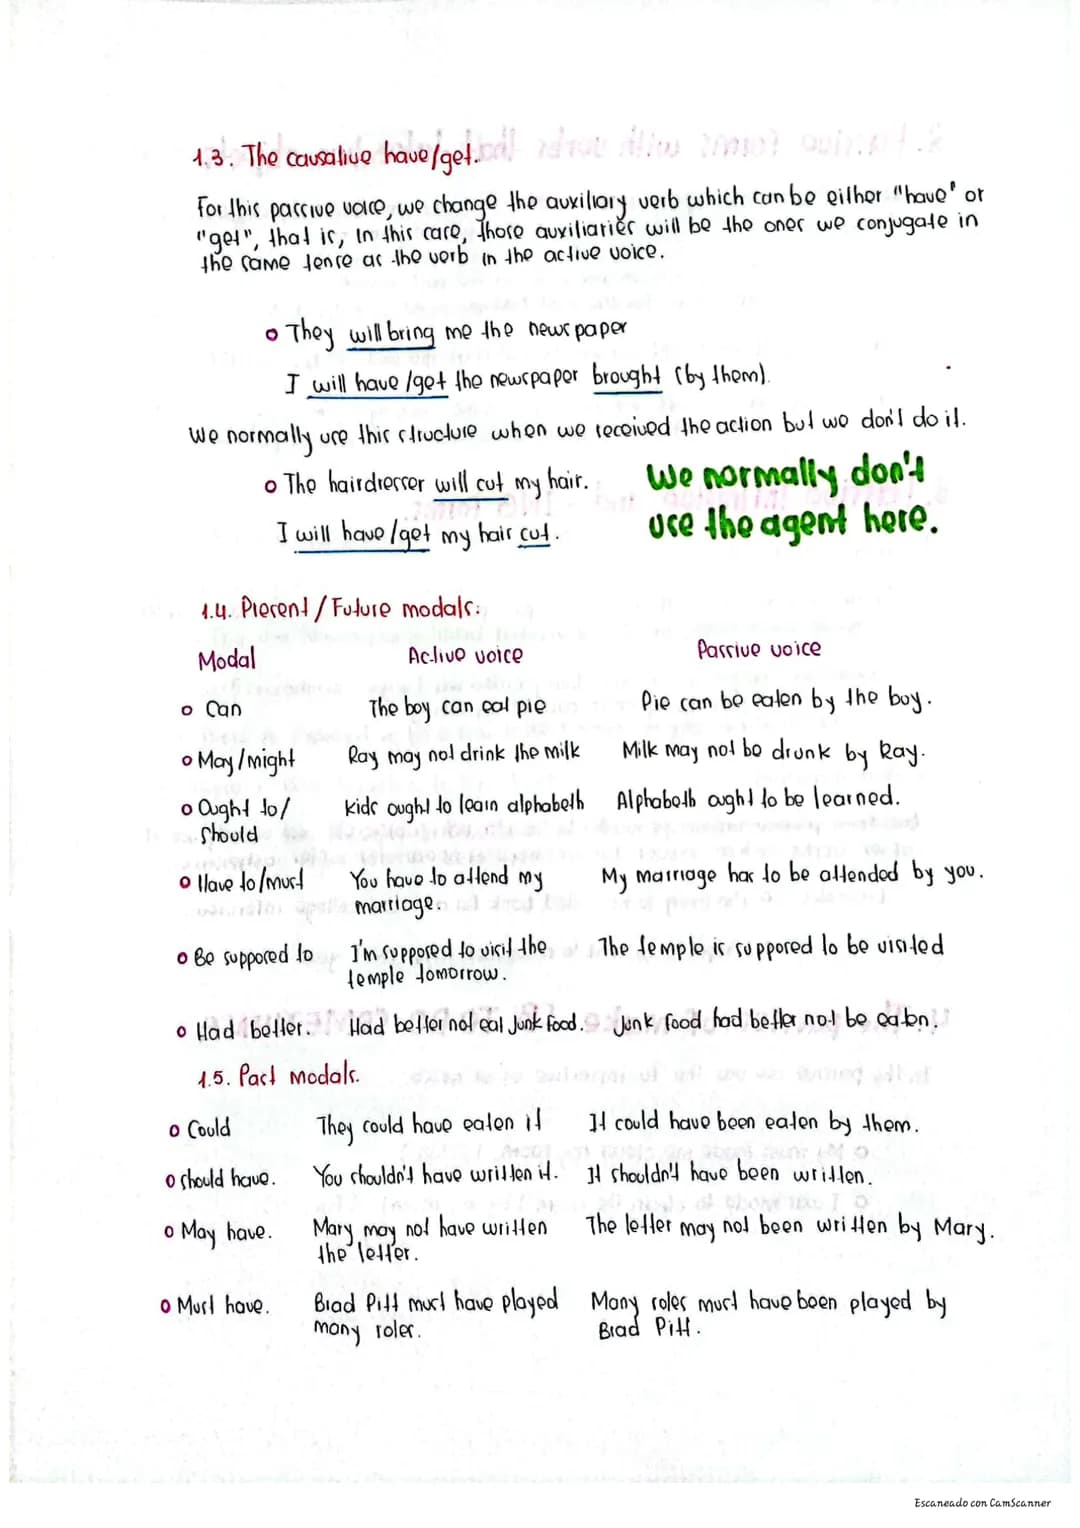 1.3. The causative have/get.
For this passive voice, we change the auxiliary verb which can be either "have" or
"get", that is, in this case, those auxiliaries will be the ones we conjugate in
the same tense as the verb in the active voice.
o They will bring me the newspaper
I will have/get the newspaper brought (by them).
We normally use this structure when we received the action but we don't do it.
o The hairdresser will cut my hair.
I will have/get my hair cut.
We normally don't
use the agent here.
1.4. Present/Future modals:
Modal Active voice Passive voice
o Can The boy can eat pie Pie can be eaten by the boy.
o May/might Ray may not drink the milk Milk may not be drunk by Ray.
o Ought to/ Kids ought to learn alphabeth Alphabeth ought to be learned.
should
o Have to/must You have to attend my My marriage has to be attended by you.
marriage.
o Be supposed to I'm supposed to visit the The temple is supposed to be visited
temple tomorrow.
o Had better. Had better not eat junk food. Junk food had better not be eaten.
1.5. Past modals.
o Could They could have eaten it It could have been eaten by them.
o should have. You shouldn't have written it. It shouldn't have been written.
o May have. Mary may not have written The letter may not been written by Mary.
the letter.
o Must have. Brad Pitt must have played Many roles must have been played by
many roles. Brad Pitt.
Escaneado con CamScanner